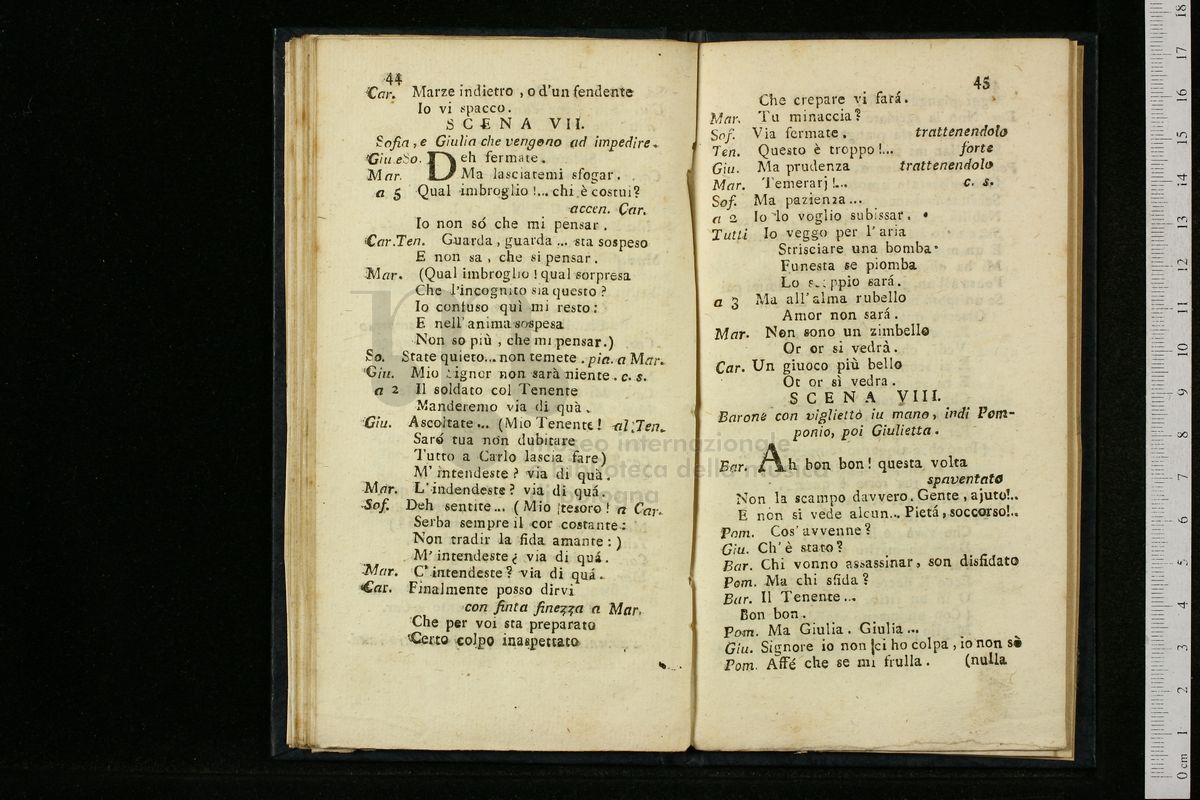 44
Car. Marze indietro , o d'un fendente
Io vi spacco.
SCENA VII.
Sofia, e Giulia che vengono ad impedire.
Giu. e So. Deh fermate.
Mar. Ma lasciatemi sfogar.
a 5 Qual imbroglio !... chi è costui?
accen. Car.
Io non só che mi pensar.
Car. Ten. Guarda, guarda ... sta sospeso
E non sa, che si pensar.
Mar. (Qual imbroglio ! qual sorpresa
Che l'incognito sia questo ?
Io confuso quì mi resto :
E nell' anima sospesa
Non so più , che mi pensar.)
So. State quieto... non temete . pia. a Mar.
Giu. Mio Signor non sarà niente. c. s.
a 2 Il soldato col Tenente
Manderemo via di quà.
Giu. Ascoltate... (Mio Tenente! al Ten.
Saró tua non dubitare
Tutto a Carlo lascia fare)
M' intendeste ? via di quà.
Mar. L' indendeste ? via di quá.
Sof. Deh sentite... ( Mio tesoro ! a Car.
Serba sempre il cor costante :
Non tradir la fida amante : )
M' intendeste ¿ via di quá.
Mar. C' intendeste ? via di quá.
Car. Finalmente posso dirvi
con finta finezza a Mar.
Che per voi sta preparato
Certo colpo inaspettato
45
Che crepare vi fará.
Mar. Tu minaccia ?
Sof. Via fermate. trattenendolo
Ten. Questo è troppo !... forte
Giu. Ma prudenza trattenendolo
Mar. Temerarj !... c. s.
Sof. Ma pazienza ...
a 2 Io lo voglio subissar.
Tutti Io veggo per l' aria
Strisciare una bomba
Funesta se piomba
Lo sará.
a 3 Ma all' alma rubello
Amor non sará.
Mar. Non sono un zimbello
Or or si vedrà.
Car. Un giuoco più bello
Or or sì vedra.
SCENA VIII.
Barone con viglietto iu mano, indi Pom-
ponio, poi Giulietta.
Bar. Ah bon bon ! questa volta
spaventato
Non la scampo davvero. Gente , ajuto!..
E non si vede alcun... Pietá, soccorso!..
Pom. Cos' avvenne ?
Giu. Ch' è stato ?
Bar. Chi vonno assassinar, son disfidato
Pom. Ma chi sfida ?
Bar. Il Tenente...
Bon bon.
Pom. Ma Giulia. Giulia ...
Giu. Signore io non ci ho colpa , io non sè
Pom. Affé che se mi frulla. (nulla
museo internazionale
biblioteca della musica
bologna
0 cm 1 2 3 4 5 6 7 8 9 10 11 12 13 14 15 16 17 18